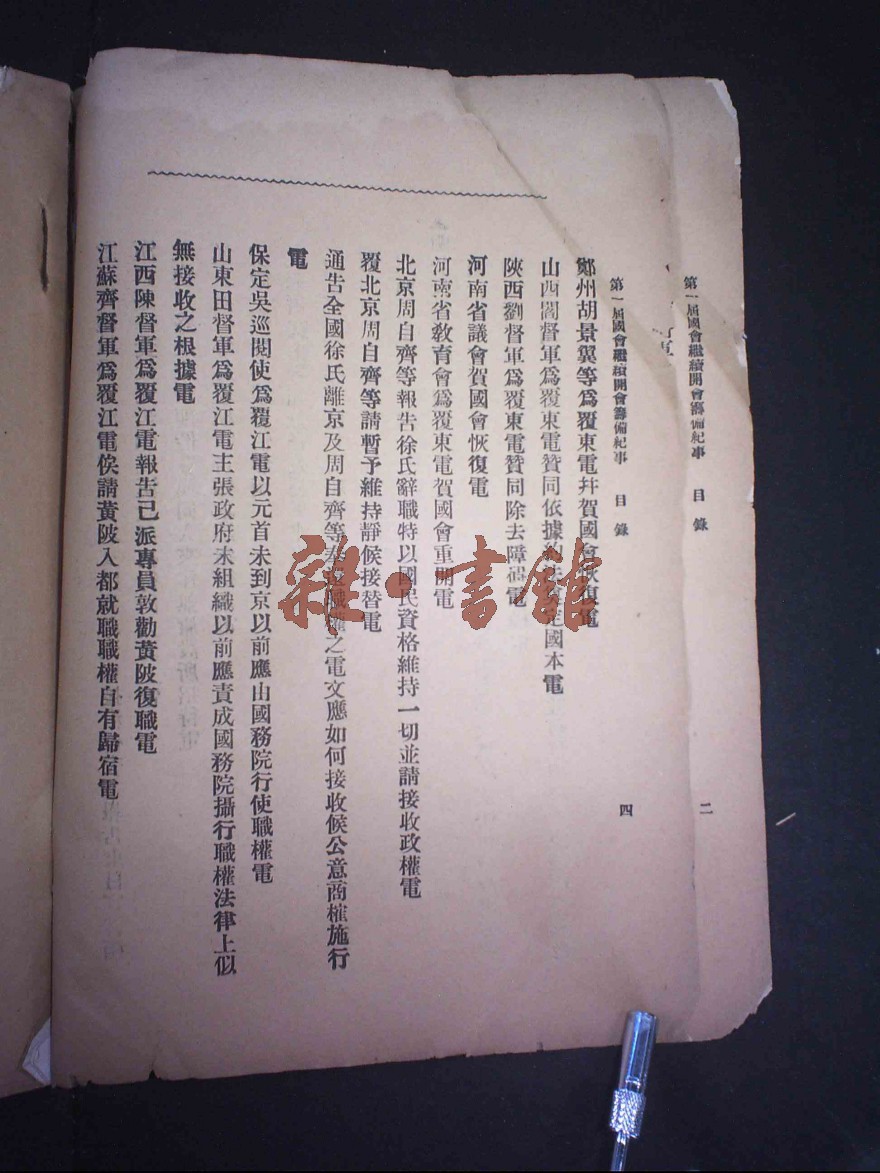 第一屆國會繼續開會籌備紀事 目錄 二
第一屆國會繼續開會籌備紀事 目錄 四
鄭州胡景翼等爲覆東電幷賀國會恢復電
山西閻督軍爲覆東電贊同依據約法奠定國本電
陝西劉督軍爲覆東電贊同除去障礙電
河南省議會賀國會恢復電
河南省敎育會爲覆東電賀國會重開電
北京周自齊等報吿徐氏辭職特以國民資格維持一切並請接收政權電
覆北京周自齊等請暫予維持靜候接替電
通吿全國徐氏離京及周自齊等奉還職權之電文應如何接收候公意商榷施行
電
保定吳巡閱使爲覆江電以元首未到京以前應由國務院行使職權電
山東田督軍爲覆江電主張政府未組織以前應責成國務院攝行職權法律上似
無接收之根據電
江西陳督軍爲覆江電報吿已派專員敦勸黃陂復職電
江蘇齊督軍爲覆江電俟請黃陂入都就職職權自有歸宿電
雜·書館